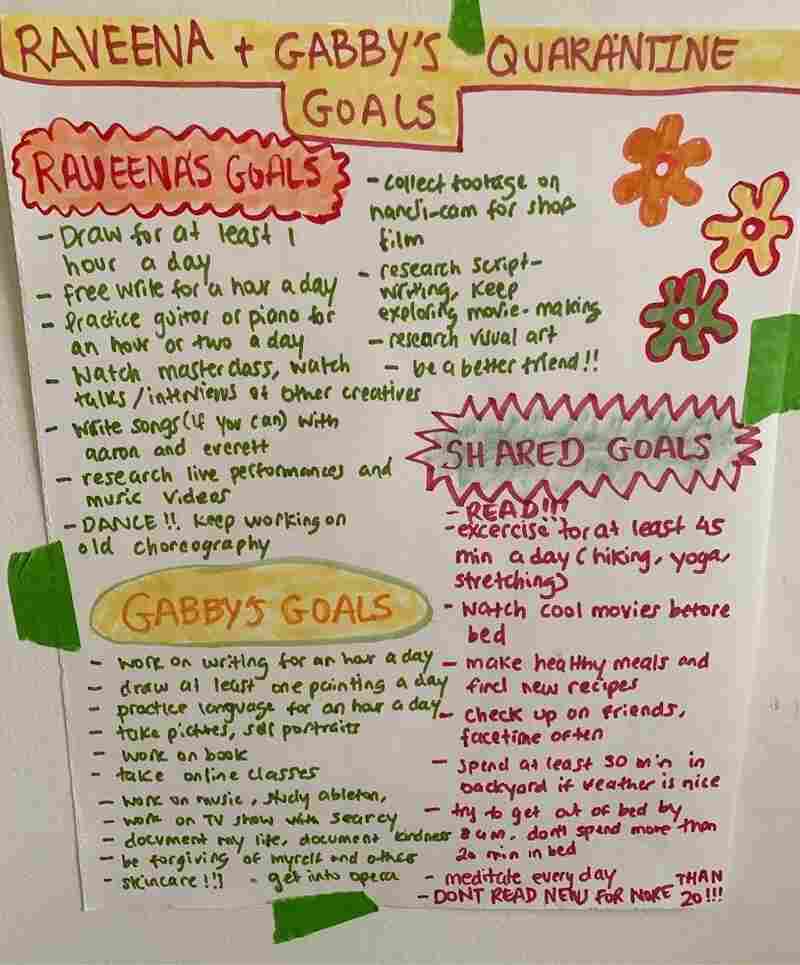 RAVEENA + GABBY'S QUARANTINE
GOALS
RAVEENA'S GOALS
- Draw for at least 1
hour a day
- free write for a hour a day
- Practice guitar or piano for
an hour or two a day
- Watch masterclass, watch
talks/interviews of other creatives
- write songs (if you can) with
aaron and everett
- research live performances and
music videos
- DANCE!! keep working on
old choreography
- collect footage on
handi-cam for shop
film
- research script-
writing, keep
exploring movie-making
- research visual art
- be a better friend!!
GABBY'S GOALS
- work on writing for an hour a day
- draw at least one painting a day
- practice language for an hour a day
- take pictures, self portraits
- work on book
- take online classes
- work on music, study ableton,
- work on TV show with searcy
- document my life, document kindness
- be forgiving of myself and others
- skincare!!! - get into opera
SHARED GOALS
- READ!!!
- excercise for at least 45
min a day (hiking, yoga,
stretching)
- watch cool movies before
bed
- make healthy meals and
find new recipes
- check up on friends,
facetime often
- spend at least 30 min in
backyard if weather is nice
- try to get out of bed by
8 am. don't spend more than
20 min in bed
- meditate every day
- DONT READ NEWS FOR MORE THAN
20!!!